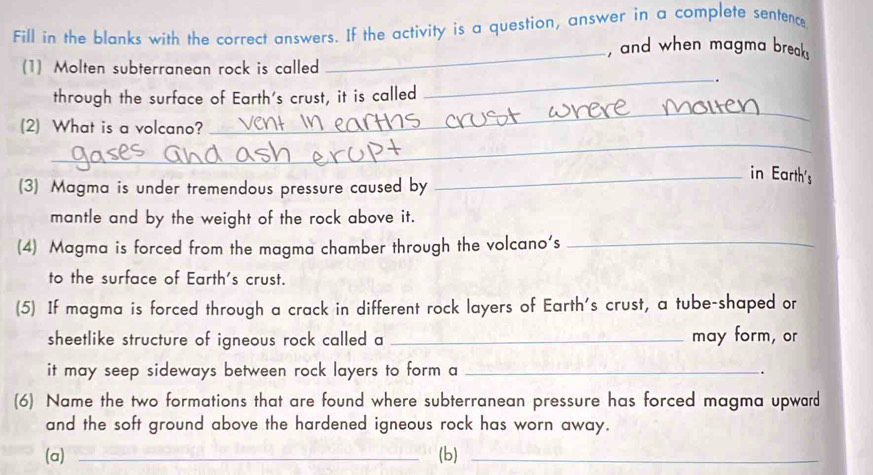 Fill in the blanks with the correct answers. If the activity is a question, answer in a complete sentence.
(1) Molten subterranean rock is called ____, and when magma breaks
through the surface of Earth's crust, it is called ____.
(2) What is a volcano? vent in earths crust where molten
gases and ash erupt
(3) Magma is under tremendous pressure caused by ____ in Earth's
mantle and by the weight of the rock above it.
(4) Magma is forced from the magma chamber through the volcano's ____
to the surface of Earth's crust.
(5) If magma is forced through a crack in different rock layers of Earth's crust, a tube-shaped or
sheetlike structure of igneous rock called a ____ may form, or
it may seep sideways between rock layers to form a ____.
(6) Name the two formations that are found where subterranean pressure has forced magma upward
and the soft ground above the hardened igneous rock has worn away.
(a) ____ (b) ____